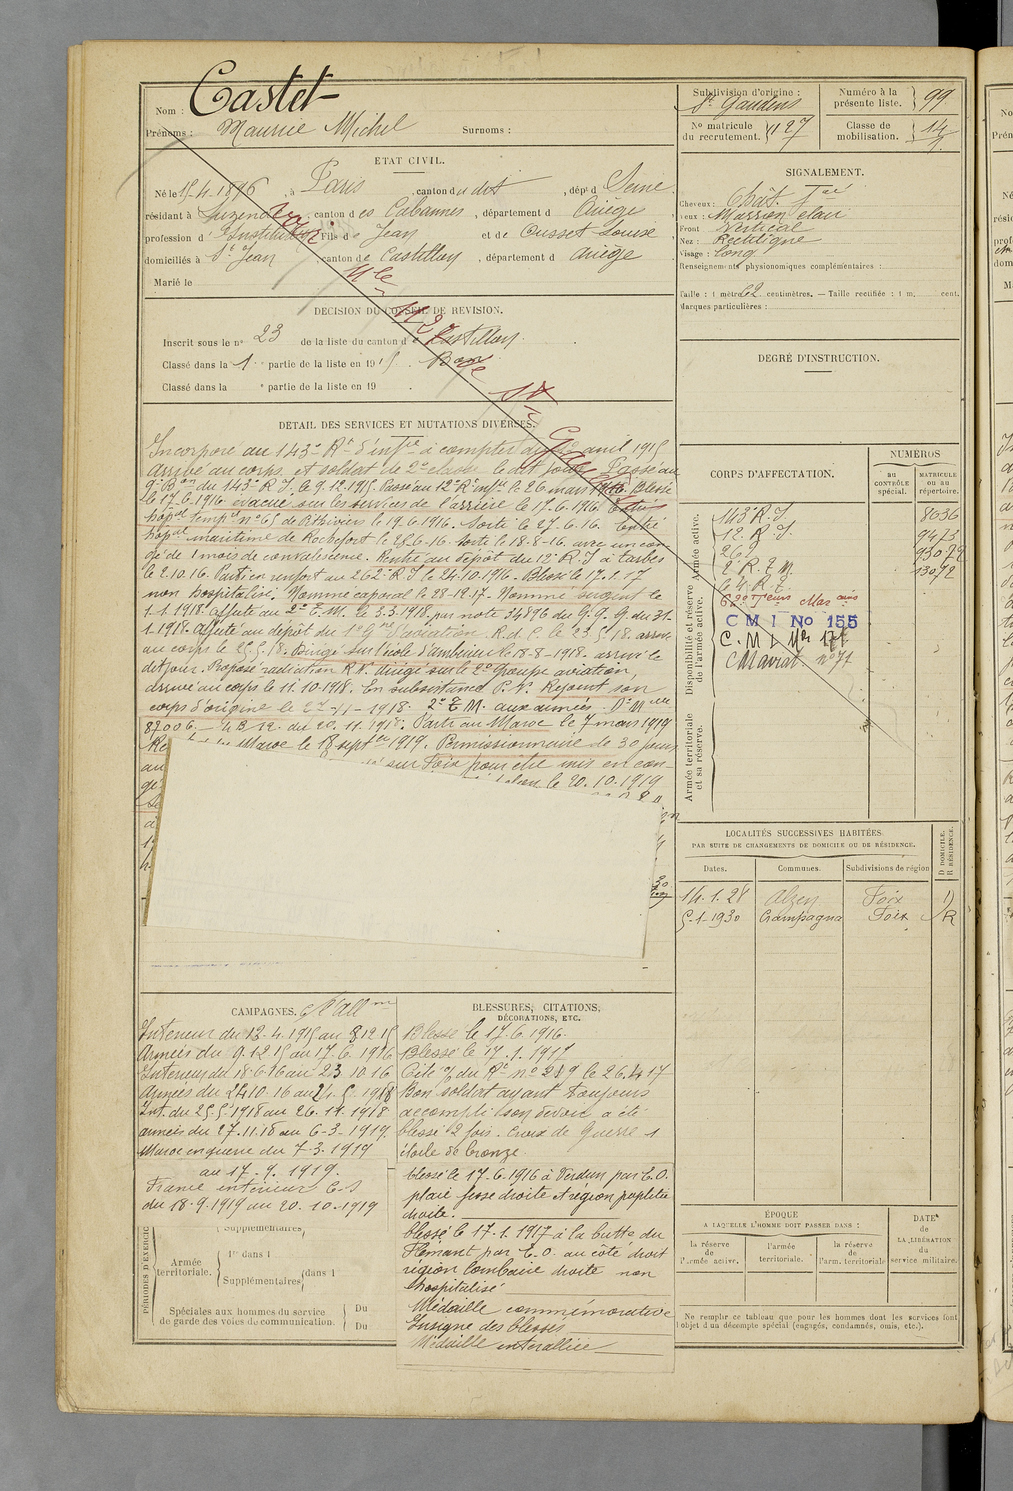 Nom : Castet
Prénoms : Maurice Michel Surnoms :
Subdivision d'origine : St Gaudens
Numéro à la présente liste. 99
No matricule du recrutement. 1127
Classe de mobilisation. 14
ETAT CIVIL.
Né le 15-4-1896, à Paris, canton du dit, dép t d Seine
résidant à Luzenac, canton d es Cabannes, département d Ariège
profession d' Instituteur Fils de Jean et de Ousset Louise
domiciliés à St Jean, canton de Castillon, département d Ariège
Marié le
DECISION DU CONSEIL DE REVISION.
Inscrit sous le n° 23 de la liste du canton de Castillon.
Classé dans la 1 partie de la liste en 1915. Bon
Classé dans la e partie de la liste en 19 .
SIGNALEMENT.
Cheveux : Chât. f
Yeux : Marron clair
Front Vertical
Nez : Rectiligne
Visage : long
Renseignements physionomiques complémentaires :
Taille : 1 mètre 62 centimètres. — Taille rectifiée : 1 m. cent.
Marques particulières :
DEGRÉ D'INSTRUCTION.
DETAIL DES SERVICES ET MUTATIONS DIVERSES.
Incorporé au 143e Rt d'Inftie à compter du avril 1915
arrivé au corps et soldat de 2e classe le dit jour. Passé au
9e Bon du 143e R.I. le 9.12.1915. Passé au 12e Rt infie le 26 mars 1916. Blessé
le 17.6.1916 évacué sur les services de l'arrière le 17.6.1916. Entré
hopal temp n° 65 de Pithiviers le 19.6.1916. Sorti le 27.6.16. Entré
hopal maritime de Rochefort le 28.6.16. Sorti le 18-8-16. avec un con
gé de 1 mois de convalescence. Rentré au dépôt du 12e R.I à Tarbes
le 2.10.16. Parti en renfort au 262e R.I le 24.10.1916. Blessé le 17.1.17
non hospitalisé. Nommé caporal le 28-12-17. Nommé sergent le
1.1.1918. Affecté au 2e T.M. le 3.3.1918 par note 34896 du G.Q.G du 31.
1.1918. Affecté au dépôt du 1e G d'aviation. R.d.C. le 23.5.18. arrivé
au corps le 25.5.18. Dirigé sur l'école d'Ambérieu le 18-8-1918. arrivé le
dit jour. Proposé radiation P.N. dirigé sur le 2e Groupe aviation,
arrivé au corps le 11.10.1918. En subsistance P.N. Rejoint son
corps d'origine le 27-11-1918. 2e T.M. aux armées. D. M
87006. — du 20.11.1918. Parti au Maroc le 7 mars 1919
Maroc le 18 septbre 1919. Permissionnaire de 30 jours
sur Foix pour être mis en con
le 20.10.1919
CORPS D'AFFECTATION.
NUMÉROS
AU CONTRÔLE spécial.
MATRICULE OU AU répertoire.
Armée active.
Disponibilité et réserve de l'armée active.
Armée territoriale et sa réserve.
143 R.I 8636
12 R.I. 9473
262 93072
2 R.T.M. 13072
le 4 R.T.
C M I No 155
C.M.I. No 171
C Mavrat n° 71
LOCALITÉS SUCCESSIVES HABITÉES
PAR SUITE DE CHANGEMENTS DE DOMICILE OU DE RÉSIDENCE.
Dates. Communes. Subdivisions de région D DOMICILE. R RÉSIDENCE.
14.1.28 Alzen Foix D
5.1.1930 Crampagna Foix R
CAMPAGNES. C l'Allm
Intérieur du 12-4.1915 au 8 12 15
Armées du 9.12.15 au 17.6.1916
Intérieur du 18.6.16 au 23 10.16
Armées du 24 10.16 au 24.5.1918
Int. du 25.5.1918 au 26.11.1918
armées du 27.11.18 au 6-3-1919.
Maroc en guerre du 7-3.1919
au 17.9.1919.
France intérieur C.S
du 18.9.1919 au 20.10.1919
PÉRIODES D'EXERCICE
Supplémentaires
Armée territoriale. 1re dans 1
Supplémentaires dans 1
Spéciales aux hommes du service de garde des voies de communication. Du
Du
BLESSURES, CITATIONS,
DÉCORATIONS, ETC.
Blessé le 17.6.1916.
Blessé le 17.1.1917
Cité O/ du Rt n° 219 le 26.4.17
Bon soldat ayant toujours
accompli son devoir a été
blessé 2 fois. Croix de Guerre 1
étoile de bronze.
blessé le 17-6-1916 à Verdun par E.O.
plaie fesse droite et région poplitée
droite.
blessé le 17.1.1917 à la butte du
Mesnil par E.O. au côté droit
région lombaire droite non
hospitalisé
Médaille commémorative
Insigne des blessés
Médaille interalliée
ÉPOQUE
A LAQUELLE L'HOMME DOIT PASSER DANS :
la réserve de l'armée active.
l'armée territoriale.
la réserve de l'arm. territoriale
DATE de LA LIBÉRATION du service militaire.
Ne remplir ce tableau que pour les hommes dont les services font
l'objet d'un décompte spécial (engagés, condamnés, omis, etc.).